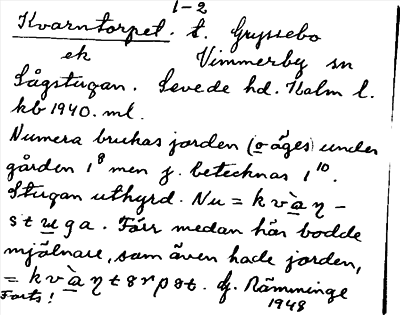 1-2
Kvarntorpet. t. Gryssebo
ek Vimmerby sn
Sågstugan. Sevede hd. Kalm l.
kb 1940. ml.
Numera brukas jorden (o äges) under
gården 1⁸ men j. betecknas 1¹⁰.
Stugan uthyrd. Nu = kvàŋ-
stuga. Förr medan här bodde
mjölnare, som även hade jorden,
= kvàŋtɵrpət. Hj. Rämminge
Forts! 1948